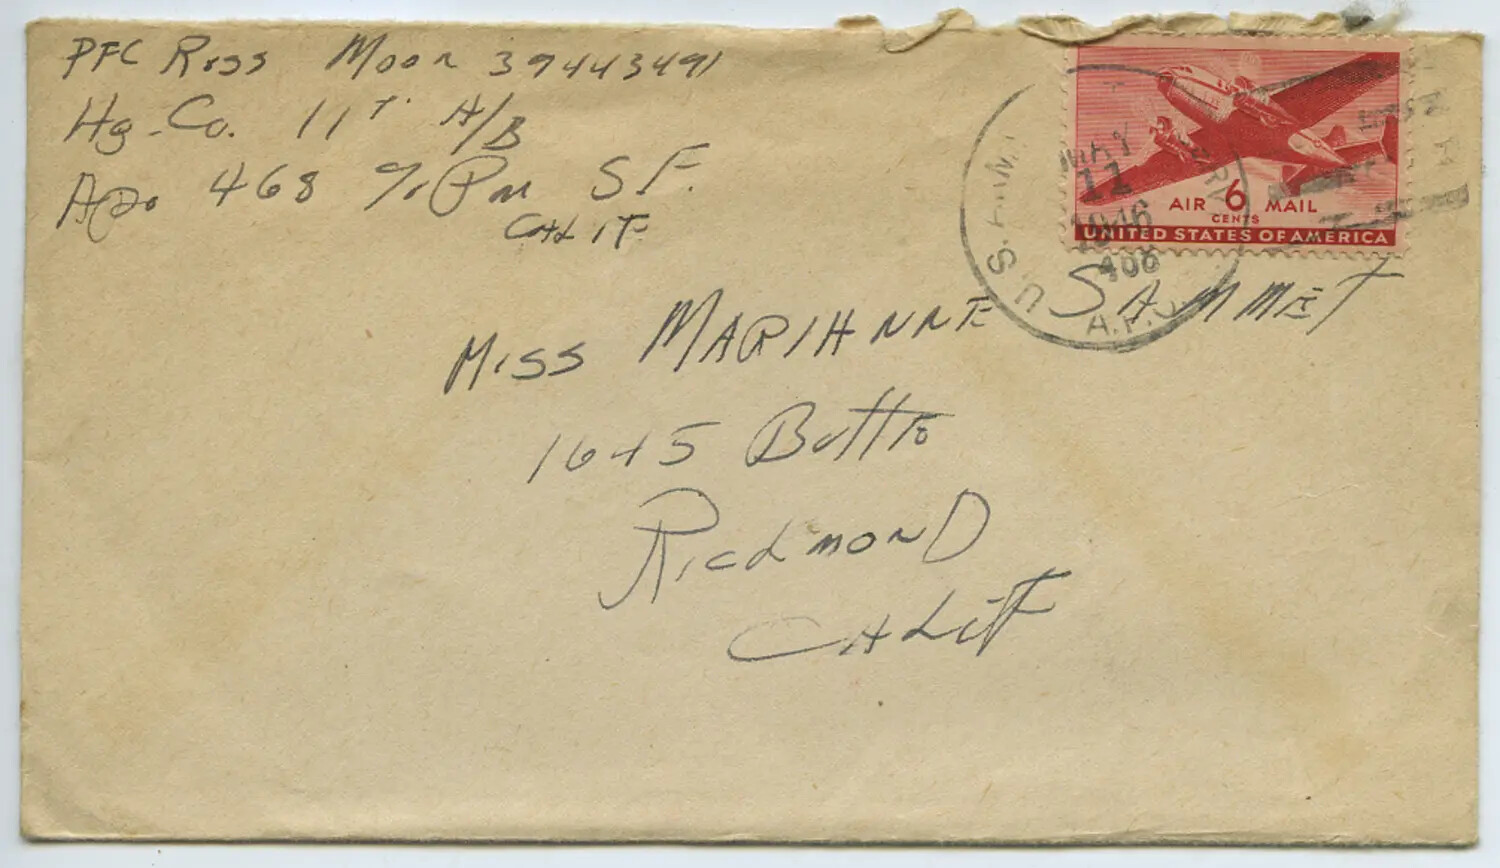 PFC Ross Moon 39443491
Hq. Co. 11T. A/B
APO 468 c/o PM S F.
CALIF
AIR 6 MAIL
CENTS
UNITED STATES OF AMERICA
MAY
11
1946
U.S. ARMY
A.P.O.
Miss MARIANNE SAMMET
1645 Butte
Ricdmond
CALIF